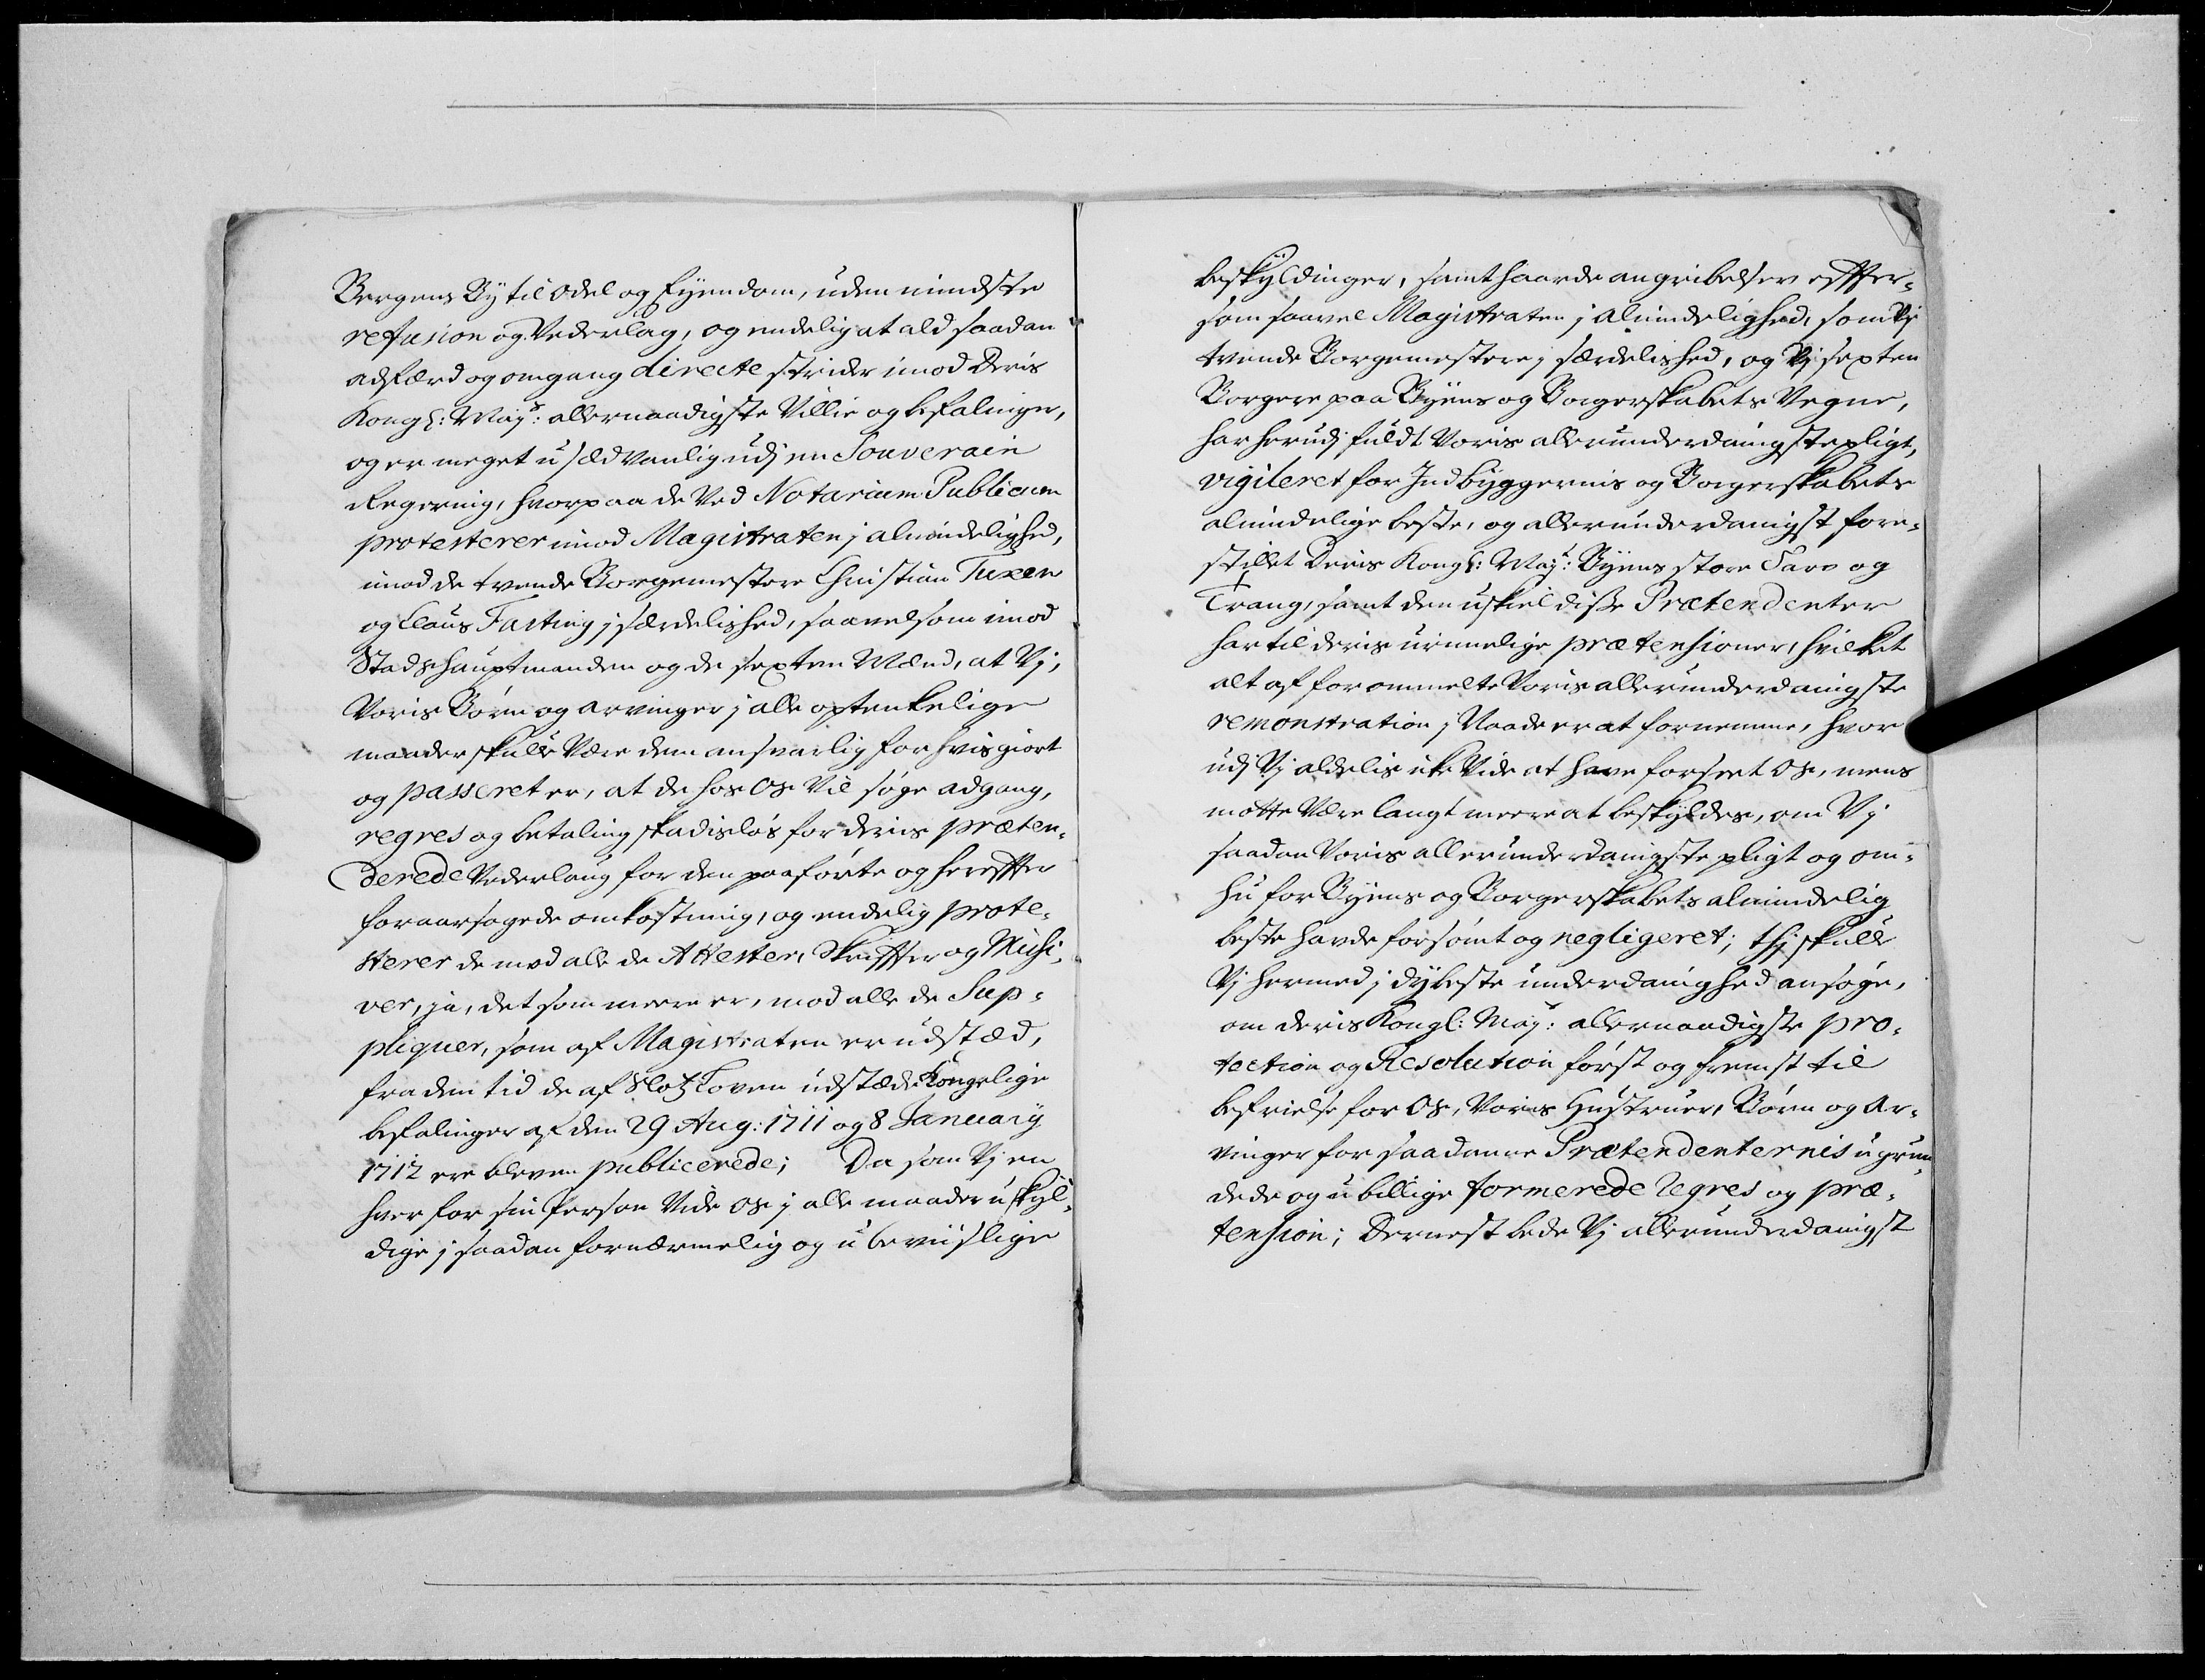 Bergens By til odel og Eyendom, uden mindste
refusion og Vederlag, og endelig at ald saadan
adfærd og omgang directe strider imod Deris
Kongl: Mayts: allernaadigste Villie og befalinger,
og er meget usædvanlig udj en Souverain
Regering, hvorpaa de Ved Notarium Publicum
protesterer imod Magistraten j almindelighed,
imod de tvende Borgemestere Christian Tuxen
og Claus Fasting j særdelished, saavelsom imod
Stadshauptmanden og de sexten Mænd, at Vj,
Voris Børn og arvinger j alle optenkelige
maader skulle Være dem ansvarlig for hvis giort
og passeret er, at de hos os Vil søge adgang,
regres og betaling skadisløs for deris præten-
derede Vederlaug for den paaførte og hereffter
foraarsagede omkostning, og endelig prote-
sterer de mod alle de Attester, Skriffter og Missi-
ver, ja, det som meere er, mod alle de Sup-
pliquer, som af Magistraten er udstæd,
fra den tid de af Slotz Loven udstæde Kongelige
befalinger af den 29 Aug: 1711 og 8 January
1712 ere bleven publicerede; Da som Vj en
hver for sin Person Vide os j alle maader uskyl-
dige j saadan fornærmelig og ubeviislige
beskyldinger, samt haarde angribelser effter-
som saavel Magistraten j almindelighed, som Vj
tvende Borgemestere j særdelished, og Vj sexten
Borgere paa Byens og Borgerskabets Vegne,
har herudj fuldt Voris allerunderdanigste pligt,
vigileret for Indbyggernis og Borgerskabets
almindelige beste, og allerunderdanigst fore-
stillet Deris Kongl: Mayt: Byens store Tarv og
Trang, samt den uskiel disse Prætendenter
har til deris urimelige prætensioner, hvilket
alt af forommelte Voris allerunderdanigste
remonstration j Naade er at fornemme, hvor
udj Vj aldelis icke Vide at have forseet os, mens
motte Være langt meere at beskyldes, om Vj
saadan Voris allerunderdanigste pligt og om-
hu for Byens og Borgerskabets almindelig
beste havde forsømt og negligeret; thj skulle
Vj hermed j dybeste underdanighed ansøge,
om deris Kongl: Mayts: allernaadigste pro-
tection og Resolution først og fremst til
befrielse for os, Voris Hustruer, Børn og Ar-
vinger for saadanne Prætendenternis ugrun-
dede og ubillige formerede Regres og præ-
tension; Dernest bede Vj allerunderdanigst